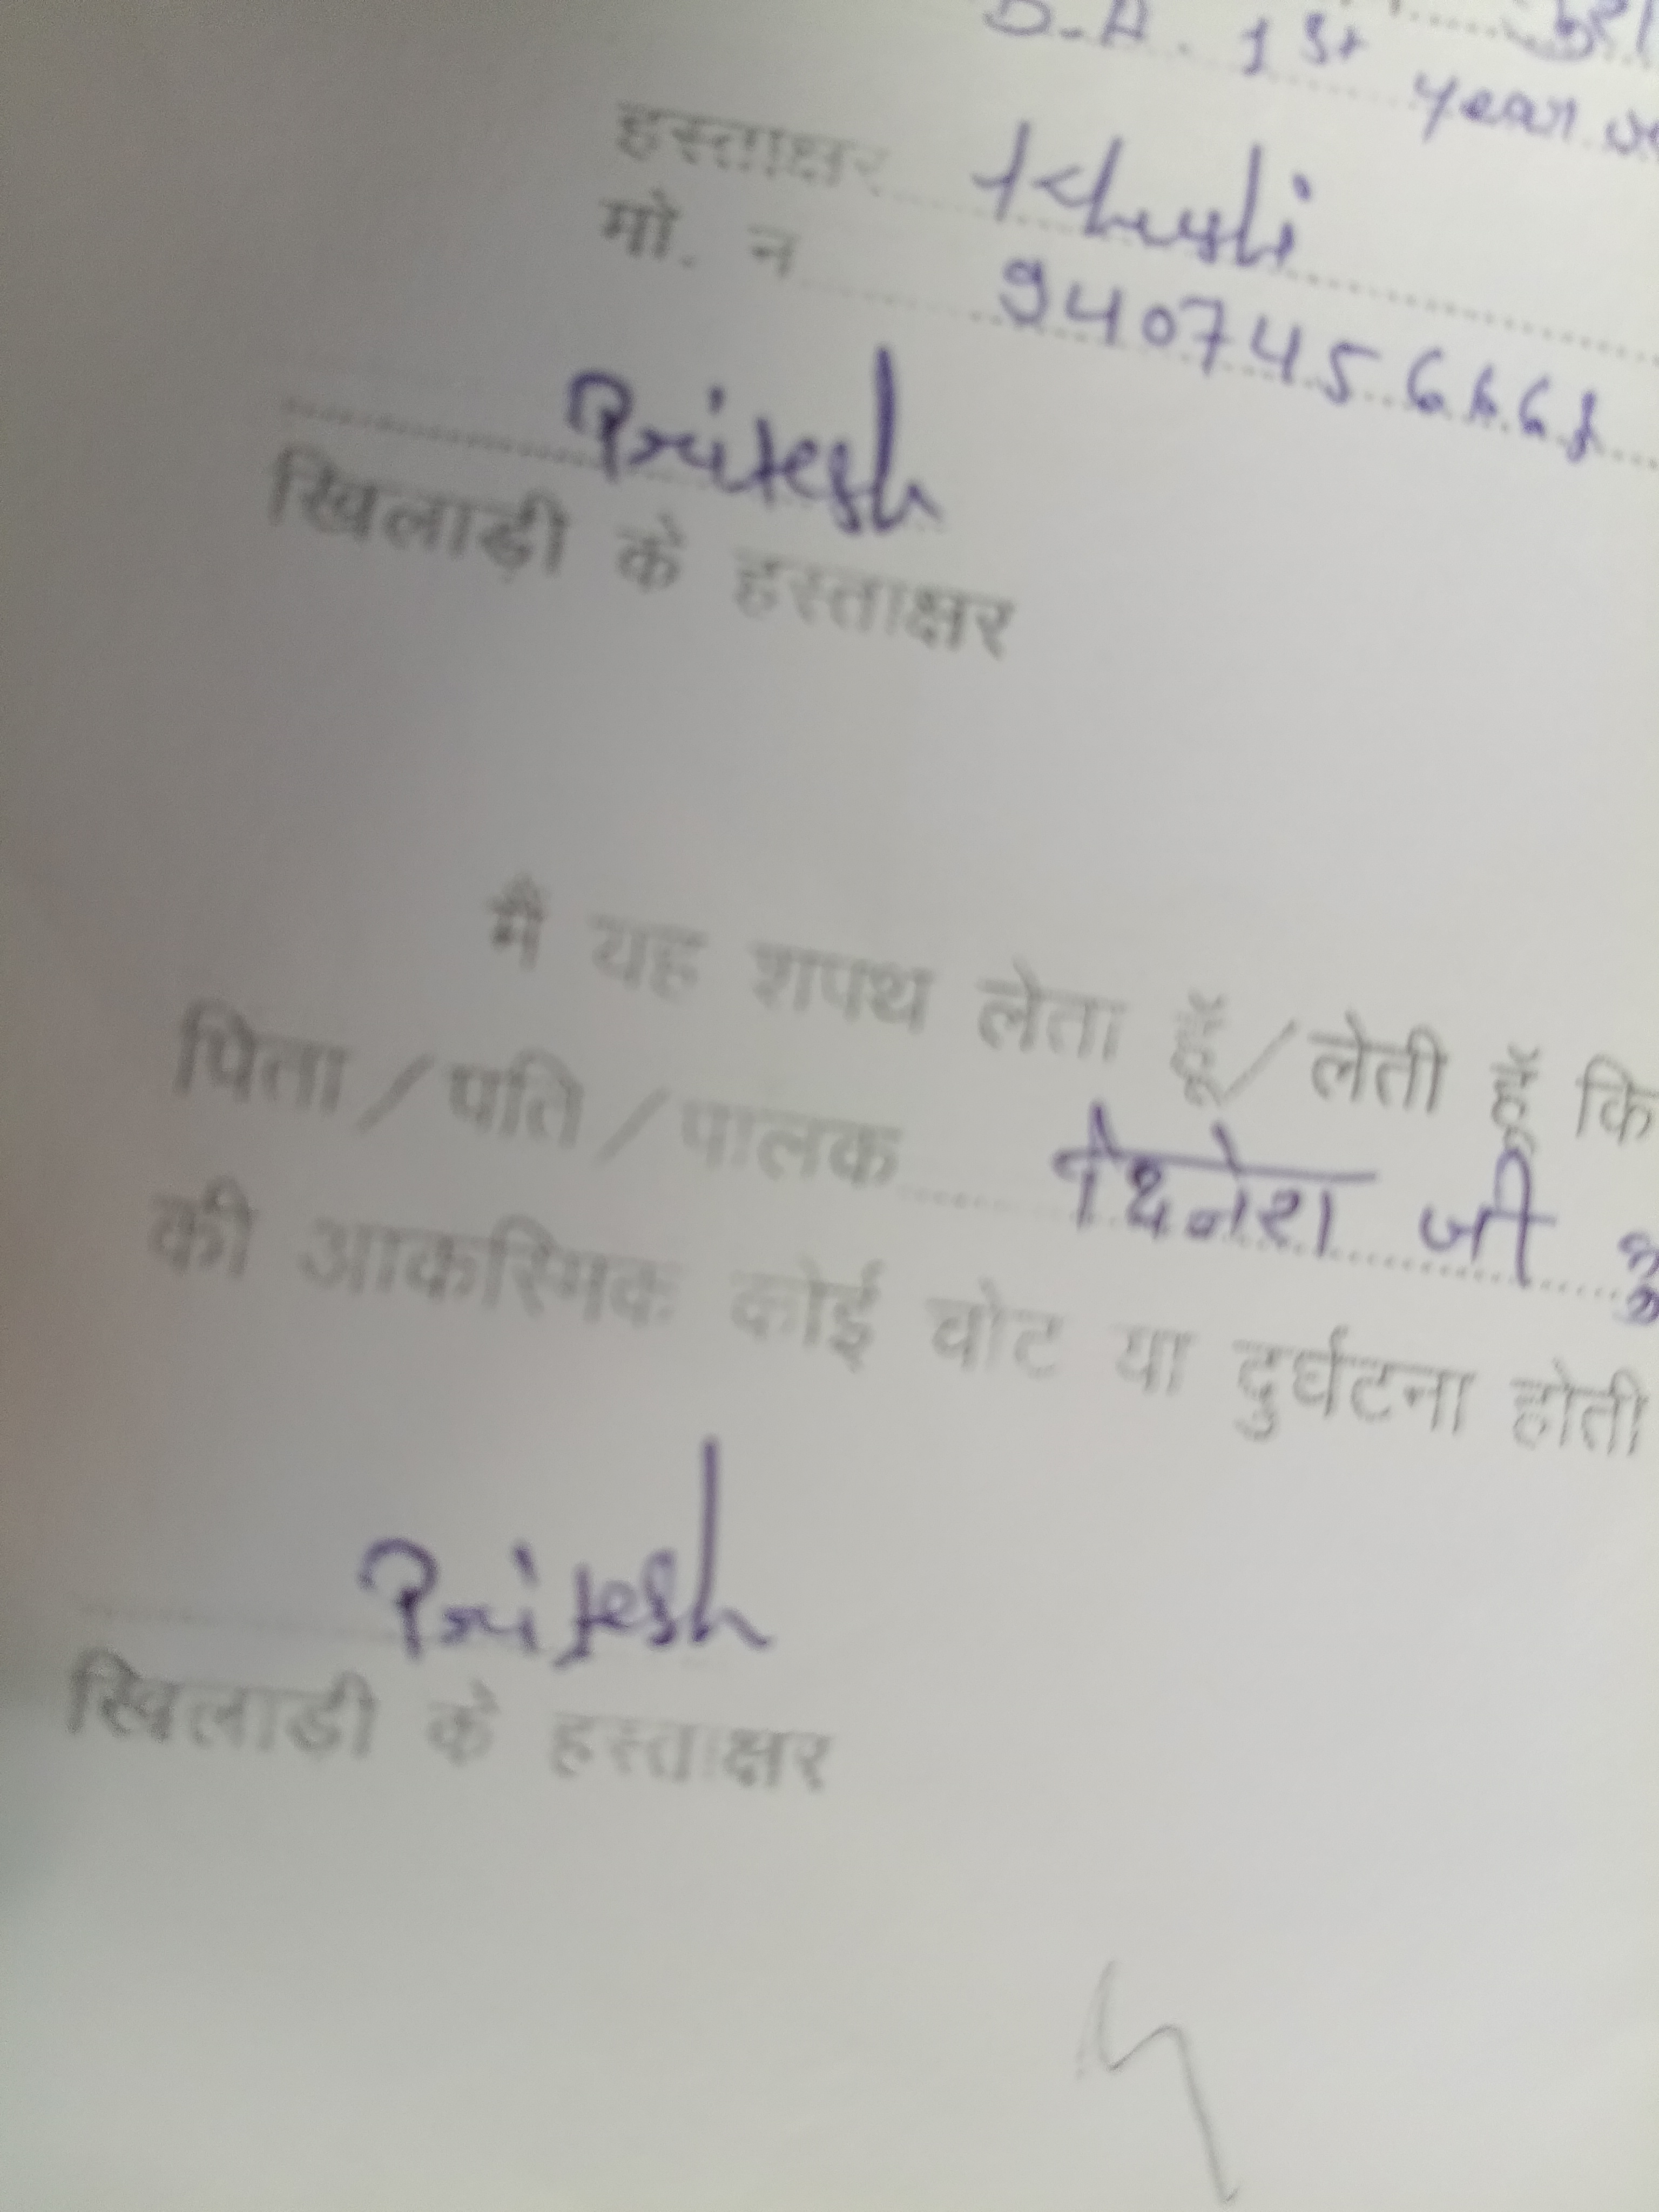 B.A. 1st year
हस्ताक्षर Khushi
मो. न 940745666
Pritesh
खिलाड़ी के हस्ताक्षर
मै यह शपथ लेता हूँ/लेती हूँ कि
पिता/पति/पालक दिनेश जी
की आकस्मिक कोई चोट या दुर्घटना होती
Pritesh
खिलाड़ी के हस्ताक्षर